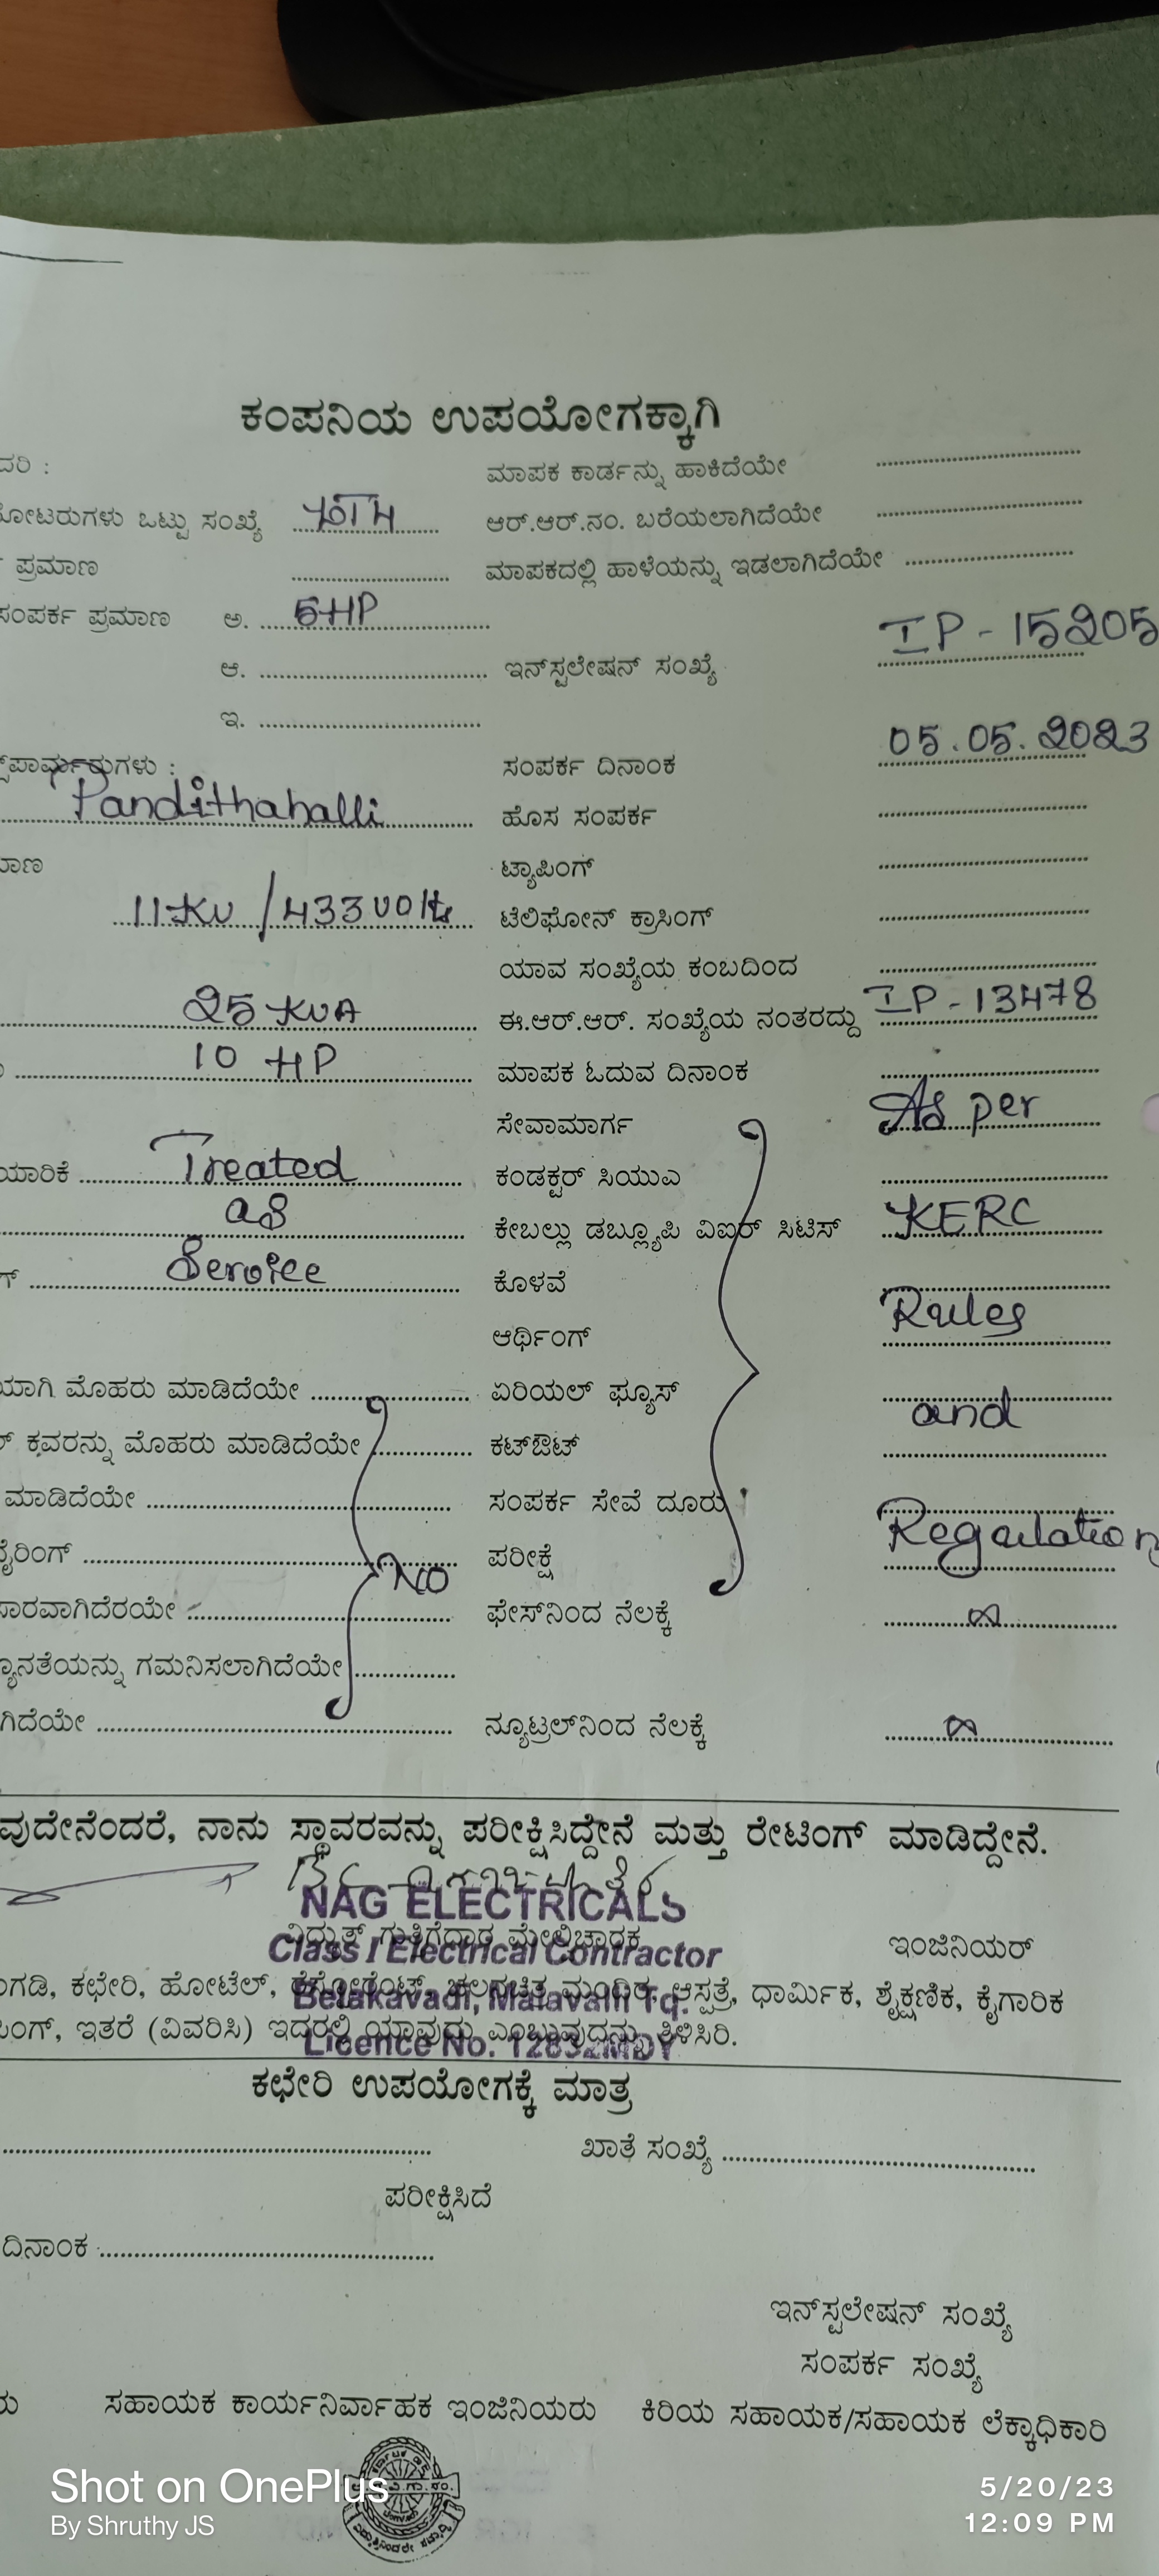 ಕಂಪನಿಯ ಉಪಯೋಗಕ್ಕಾಗಿ
ದರಿ :
ಮಾಪಕ ಕಾರ್ಡನ್ನು ಹಾಕಿದೆಯೇ
ೋಟರುಗಳು ಒಟ್ಟು ಸಂಖ್ಯೆ
ಆರ್.ಆರ್.ನಂ. ಬರೆಯಲಾಗಿದೆಯೇ
ಪ್ರಮಾಣ
ಮಾಪಕದಲ್ಲಿ ಹಾಳೆಯನ್ನು ಇಡಲಾಗಿದೆಯೇ
ಸಂಪರ್ಕ ಪ್ರಮಾಣ ಅ. 5HP
ಆ. ಇನ್‌ಸ್ಟಲೇಷನ್ ಸಂಖ್ಯೆ IP - 15205
ಇ.
ಸಂಪರ್ಕ ದಿನಾಂಕ 05.05.2023
Pandithahalli ಹೊಸ ಸಂಪರ್ಕ
ಮಾಣ ಟ್ಯಾಪಿಂಗ್
11KV / 433 volts ಟೆಲಿಫೋನ್ ಕ್ರಾಸಿಂಗ್
ಯಾವ ಸಂಖ್ಯೆಯ ಕಂಬದಿಂದ
25 KVA ಈ.ಆರ್.ಆರ್. ಸಂಖ್ಯೆಯ ನಂತರದ್ದು IP - 13478
10 HP ಮಾಪಕ ಓದುವ ದಿನಾಂಕ
ಸೇವಾಮಾರ್ಗ As per
ಯಾರಿಕೆ Treated ಕಂಡಕ್ಟರ್ ಸಿಯುಎ
as ಕೇಬಲ್ಲು ಡಬ್ಲ್ಯೂಪಿ ವಿಐರ್ ಸಿಟಿಸ್ KERC
ಗ್ Service ಕೊಳವೆ
ಆರ್ಥಿಂಗ್ Rules
ಯಾಗಿ ಮೊಹರು ಮಾಡಿದೆಯೇ ಏರಿಯಲ್ ಫ್ಯೂಸ್ and
ಕವರನ್ನು ಮೊಹರು ಮಾಡಿದೆಯೇ ಕಟ್‌ಔಟ್
ಮಾಡಿದೆಯೇ ಸಂಪರ್ಕ ಸೇವೆ ದೂರು
ೈರಿಂಗ್ NO ಪರೀಕ್ಷೆ Regulation
ಸಾರವಾಗಿದೆರಯೇ ಫೇಸ್‌ನಿಂದ ನೆಲಕ್ಕೆ ∞
ನ್ಯೂನತೆಯನ್ನು ಗಮನಿಸಲಾಗಿದೆಯೇ
ಗಿದೆಯೇ ನ್ಯೂಟ್ರಲ್‌ನಿಂದ ನೆಲಕ್ಕೆ ∞
ವುದೇನೆಂದರೆ, ನಾನು ಸ್ಥಾವರವನ್ನು ಪರೀಕ್ಷಿಸಿದ್ದೇನೆ ಮತ್ತು ರೇಟಿಂಗ್ ಮಾಡಿದ್ದೇನೆ.
NAG ELECTRICALS
ವಿದ್ಯುತ್ ಗುತ್ತಿಗೆದಾರ ಮೇಲ್ವಿಚಾರಕ ಇಂಜಿನಿಯರ್
Class I Electrical Contractor
ಂಗಡಿ, ಕಛೇರಿ, ಹೋಟೆಲ್, ರೆಸ್ಟೋರೆಂಟ್, ಚಲನಚಿತ್ರ ಮಂದಿರ, ಆಸ್ಪತ್ರೆ, ಧಾರ್ಮಿಕ, ಶೈಕ್ಷಣಿಕ, ಕೈಗಾರಿಕ
Belakavadi, Malavalli Tq.
ಂಗ್, ಇತರೆ (ವಿವರಿಸಿ) ಇದರಲ್ಲಿ ಯಾವುದು ಎಂಬುವುದನ್ನು ತಿಳಿಸಿರಿ.
Licence No. 12832MDY
ಕಛೇರಿ ಉಪಯೋಗಕ್ಕೆ ಮಾತ್ರ
ಖಾತೆ ಸಂಖ್ಯೆ
ಪರೀಕ್ಷಿಸಿದೆ
ದಿನಾಂಕ
ಇನ್‌ಸ್ಟಲೇಷನ್ ಸಂಖ್ಯೆ
ಸಂಪರ್ಕ ಸಂಖ್ಯೆ
ರು ಸಹಾಯಕ ಕಾರ್ಯನಿರ್ವಾಹಕ ಇಂಜಿನಿಯರು ಕಿರಿಯ ಸಹಾಯಕ/ಸಹಾಯಕ ಲೆಕ್ಕಾಧಿಕಾರಿ
Shot on OnePlus
By Shruthy JS
5/20/23
12:09 PM